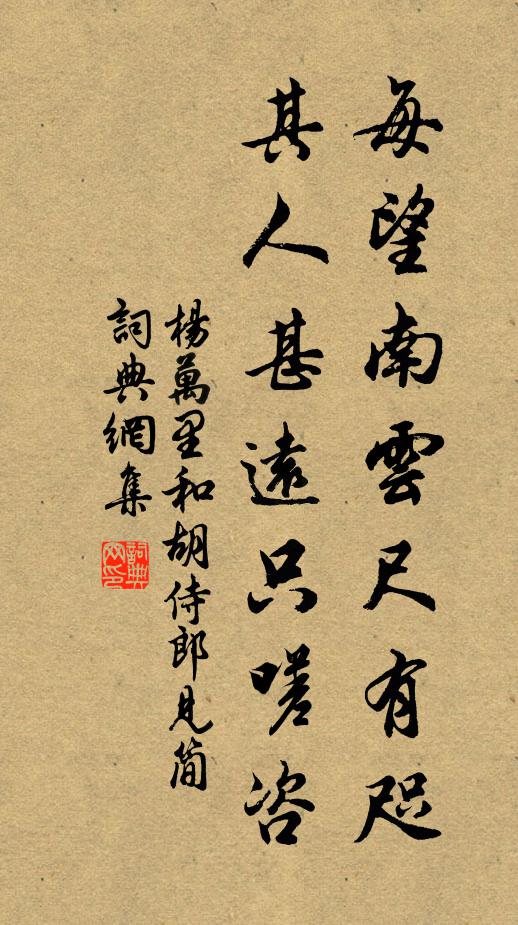 每望南雲尺有咫
其人甚遠只嗟咨
楊萬里和胡侍郎見簡
詞典網集
詞典网印